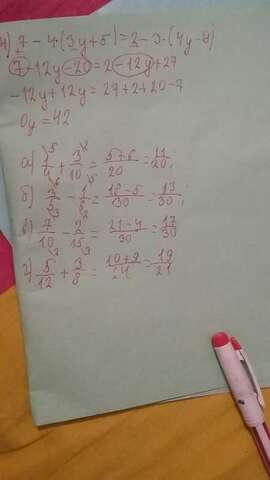 и) 7-4·(3y+5)=2-3·(4y-9)
7-12y-20=2-12y+27
-12y+12y=27+2+20-7
0y=42
а) 1/4 + 3/10 = 5+6/20 = 11/20;
б) 3/5 - 1/6 = 18-5/30 = 13/30;
в) 7/10 - 2/15 = 21-4/30 = 17/30
г) 5/12 + 3/8 = 10+9/24 = 19/21